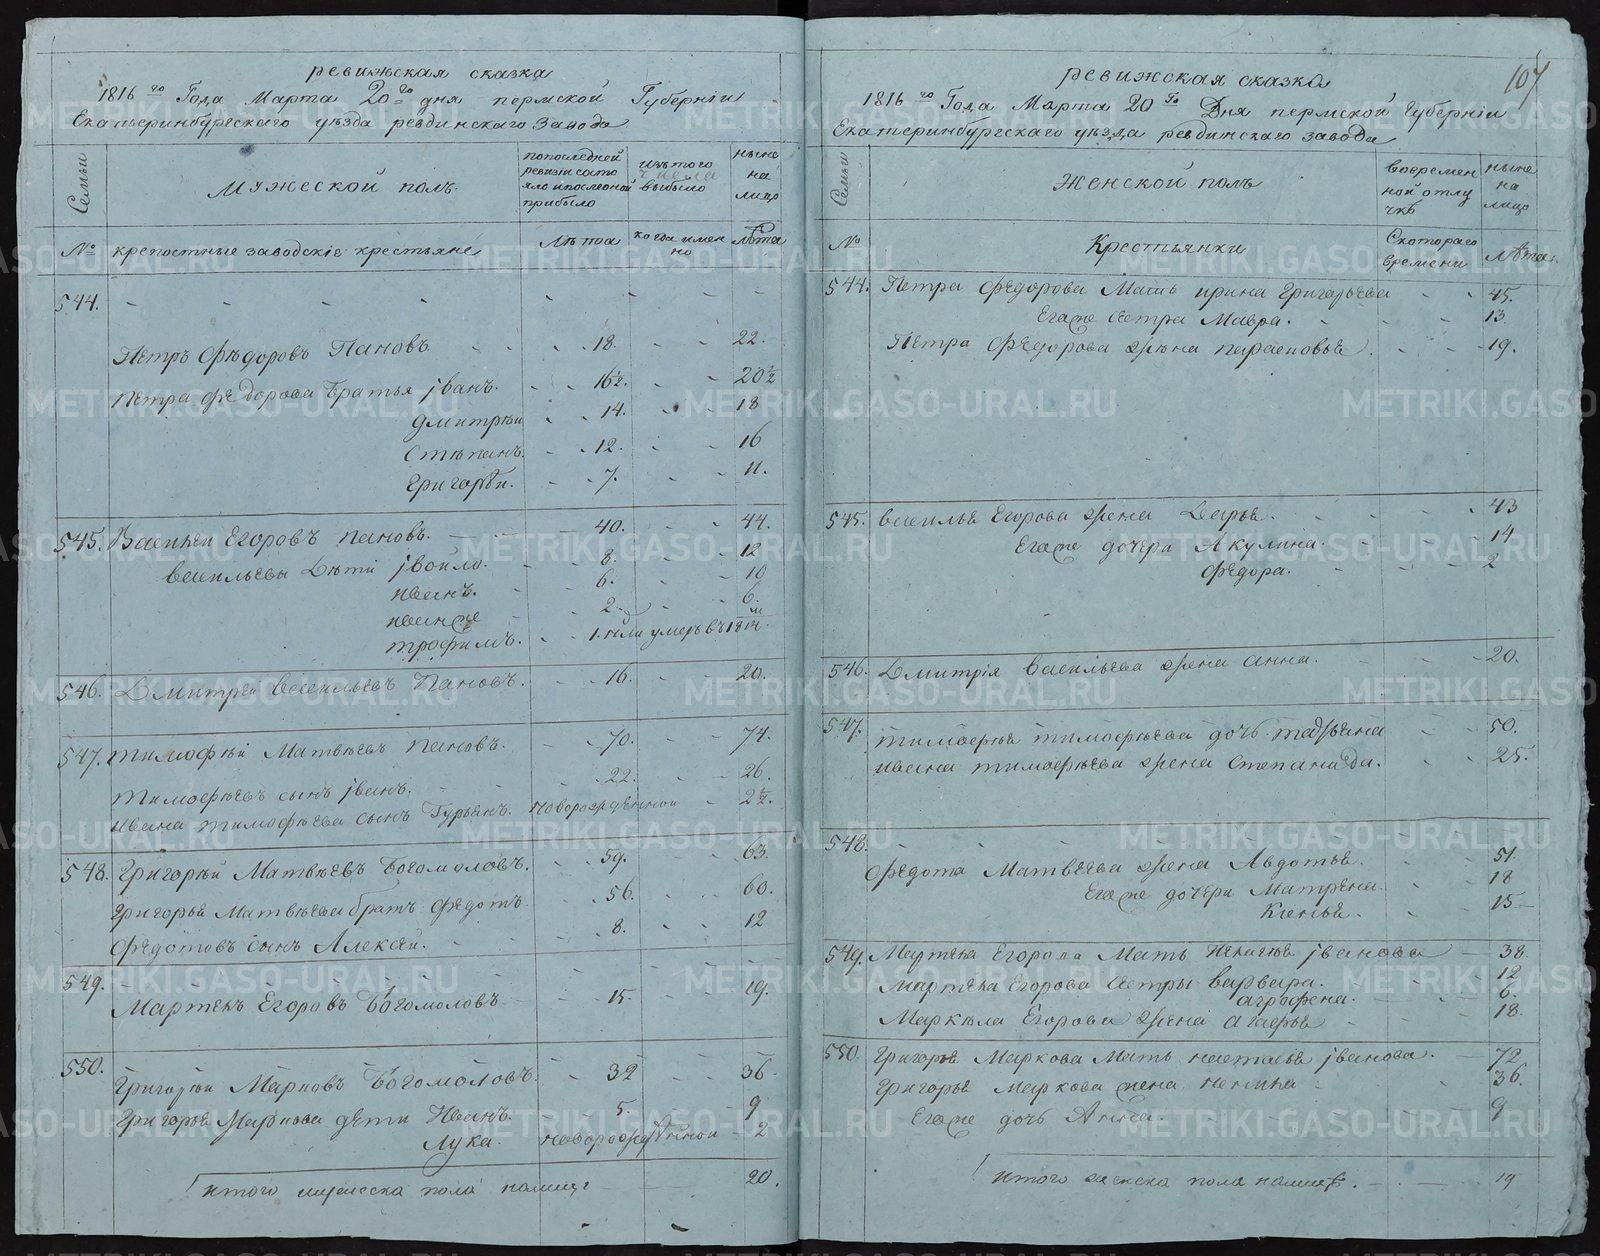 ревижская сказка
1816 го Года Марта 20 го дня пермской Губерніи
Екатьеринбургскаго уѣзда ревдинскаго Завода
Семьи
Мужеской полъ
попоследней ревизіи состояло ипоследной прибыло
изътого числа выбыло
ныне на лицо
№
крепостные заводскіе крестьяне
Лѣтоа
когда имен но
Лѣта
544.
Пѣтръ Фѣдоровъ Пановъ 18. 22.
Петра федорова братья іванъ. 16½. 20½
Дмитрѣи 14. 18
Стѣпанъ. 12. 16
Григорѣи. 7. 11.
545. Василѣи Егоровъ пановъ. 40. 44.
васильевы Дѣти івойло. 8. 12
иванъ. 6. 10
иванже 2. 6.
трофимъ. 1. умеръ въ 1814 м
546. Дмитреи васильевъ Пановъ. 16. 20.
547. тимофѣи Матвѣевъ пановъ. 70. 74.
тимофѣевъ сынъ іванъ. 22. 26.
ивана тимофѣева сынъ Гурьянъ. новорожденнои 2½.
548. Григорѣи Матвѣевъ Богомоловъ. 59. 63.
григорья Матвѣева братъ Федотъ 56. 60.
Федотовъ сынъ Алексѣи. 8. 12
549.
Мартенъ Егоровъ Богомоловъ 15. 19.
550.
григорѣи Марковъ Богомоловъ 32 36
григорья Маркова дети Иванъ. 5. 9
Лука. новорожденнои 2
итого мужеска пола налице 20.
107
ревижская сказка
1816 го Года Марта 20 го Дня пермской Губерніи
Екатеринбургскаго уѣзда ревдинскаго завода
Семьи
Женской полъ
вовремен ной отлу чкѣ
ныне на лицо
№
Крестьянки
Скотораго времени
Лѣта.
544. Петра федорова Мать ирина григорьева 45.
Егоже сестра Мавра. 13.
Петра Федорова жена парасковья. 19.
545. василья Егорова жена Дарья. 43
Егоже дочери Акулина. 14
федора. 2
546. Дмитрія васильева жена анна. 20.
547.
тимофея тимофѣева дочь татьяна 50.
ивана тимофѣева жена степанида. 25.
548.
Федота Матвѣева жена Авдотья. 51
Егоже дочери Матрена. 18
Ксенья. 15
549. Мартена Егорова Мать іванова 38
мартена Егорова сестры варвара. 12
аграфена. 6.
Маркела Егорова жена агафья 18.
550. григорья Маркова Мать настасья іванова. 72
григорья маркова жена 36.
Егоже дочь Анна. 9
итого женска пола налице. 19
METRIKI.GASO-URAL.RU